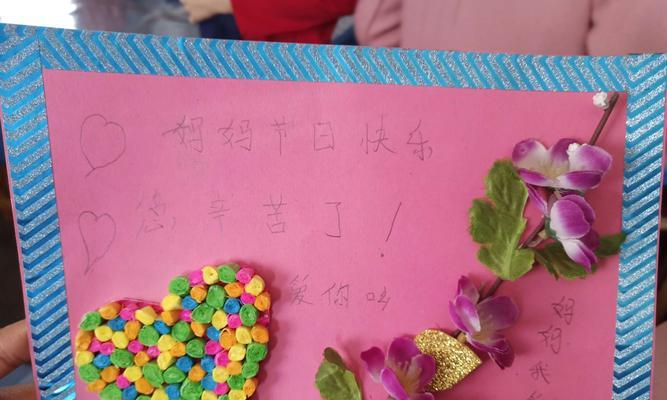 妈妈节日快乐
您辛苦了！
爱你哟
妈妈我